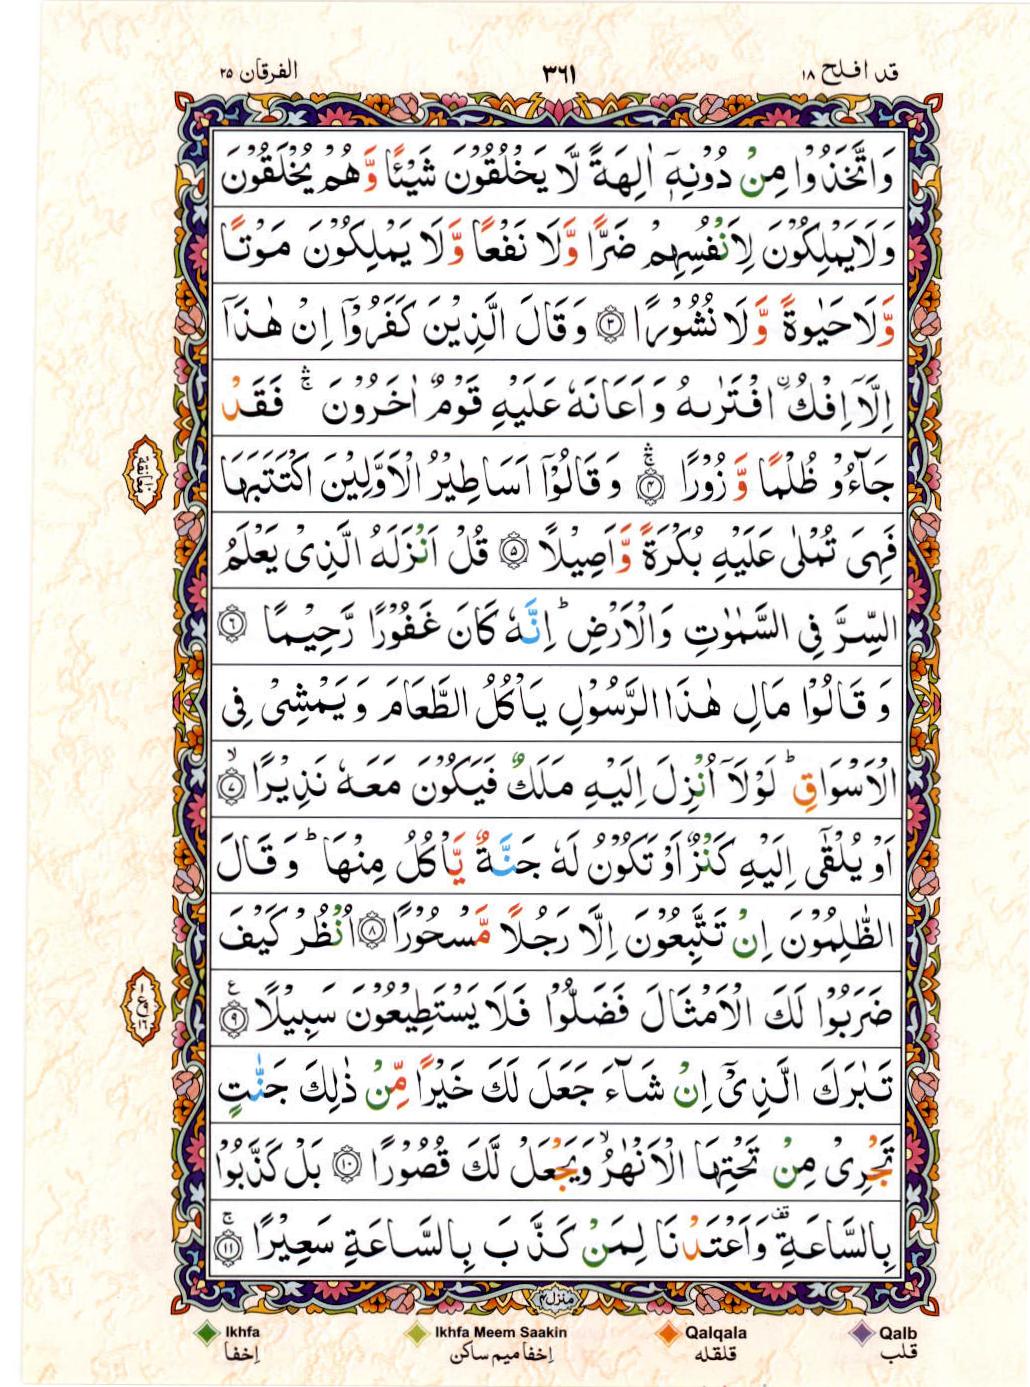 قد افلح ١٨
٣٦١
الفرقان ٢٥
وَاتَّخَذُوْا مِنْ دُوْنِهٖۤ اٰلِهَةً لَّا يَخْلُقُوْنَ شَيْـًٔا وَّهُمْ يُخْلَقُوْنَ
وَلَايَمْلِكُوْنَ لِاَنْفُسِهِمْ ضَرًّا وَّلَا نَفْعًا وَّلَا يَمْلِكُوْنَ مَوْتًا
وَّلَاحَيٰوةً وَّلَا نُشُوْرًا ۝٣ وَقَالَ الَّذِيْنَ كَفَرُوْۤا اِنْ هٰذَاۤ
اِلَّاۤ اِفْكُ ۨافْتَرٰىهُ وَاَعَانَهٗ عَلَيْهِ قَوْمٌ اٰخَرُوْنَ ۛۚ فَقَدْ
جَآءُوْ ظُلْمًا وَّ زُوْرًا ۛۚ ۝٤ وَقَالُوْۤا اَسَاطِيْرُ الْاَوَّلِيْنَ اكْتَتَبَهَا
معانقة
فَهِيَ تُمْلٰى عَلَيْهِ بُكْرَةً وَّاَصِيْلًا ۝٥ قُلْ اَنْزَلَهُ الَّذِيْ يَعْلَمُ
السِّرَّ فِي السَّمٰوٰتِ وَالْاَرْضِ ؕ اِنَّهٗ كَانَ غَفُوْرًا رَّحِيْمًا ۝٦
وَ قَالُوْا مَالِ هٰذَا الرَّسُوْلِ يَاْكُلُ الطَّعَامَ وَيَمْشِيْ فِي
الْاَسْوَاقِ ؕ لَوْلَاۤ اُنْزِلَ اِلَيْهِ مَلَكٌ فَيَكُوْنَ مَعَهٗ نَذِيْرًا ۙ ۝٧
اَوْ يُلْقٰۤى اِلَيْهِ كَنْزٌ اَوْ تَكُوْنُ لَهٗ جَنَّةٌ يَّاْكُلُ مِنْهَا ؕ وَقَالَ
الظّٰلِمُوْنَ اِنْ تَتَّبِعُوْنَ اِلَّا رَجُلًا مَّسْحُوْرًا ۝٨ اُنْظُرْ كَيْفَ
ضَرَبُوْا لَكَ الْاَمْثَالَ فَضَلُّوْا فَلَا يَسْتَطِيْعُوْنَ سَبِيْلًا ۝٩ ع
تَبٰرَكَ الَّذِيْۤ اِنْ شَآءَ جَعَلَ لَكَ خَيْرًا مِّنْ ذٰلِكَ جَنّٰتٍ
تَجْرِيْ مِنْ تَحْتِهَا الْاَنْهٰرُ ۙ وَيَجْعَلْ لَّكَ قُصُوْرًا ۝١٠ بَلْ كَذَّبُوْا
بِالسَّاعَةِ ۫ وَاَعْتَدْنَا لِمَنْ كَذَّبَ بِالسَّاعَةِ سَعِيْرًا ۚ ۝١١
منزل ٤
Ikhfa
اِخفا
Ikhfa Meem Saakin
اِخفا میم ساکن
Qalqala
قلقله
Qalb
قلب